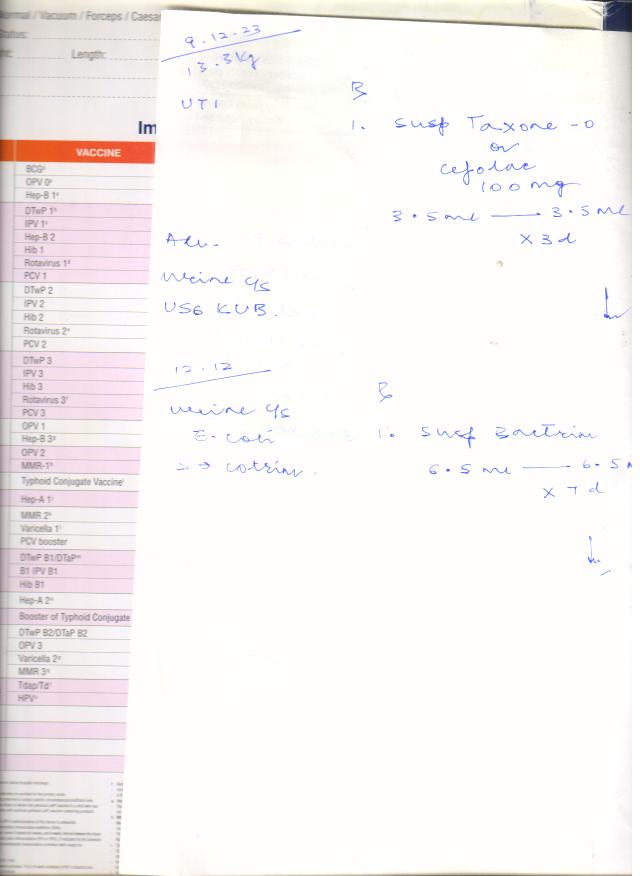 Normal / Vacuum / Forceps / Caesar
Status:
Length:
Im
VACCINE
BCG
OPV 0
Hep-B 1
DTwP 1
IPV 1
Hep-B 2
Hib 1
Rotavirus 1
PCV 1
DTwP 2
IPV 2
Hib 2
Rotavirus 2
PCV 2
DTwP 3
IPV 3
Hib 3
Rotavirus 3
PCV 3
OPV 1
Hep-B 3
OPV 2
MMR-1
Typhoid Conjugate Vaccine
Hep-A 1
MMR 2
Varicella 1
PCV booster
DTwP B1/DTaP
B1 IPV B1
Hib B1
Hep-A 2
Booster of Typhoid Conjugate
DTwP B2/DTaP B2
OPV 3
Varicella 2
MMR 3
Tdap/Td
HPV
9.12.23
13.3Kg
UTI
Rx
1. Susp Taxone-O
or
cefolac
100 mg
3.5 ml — 3.5 ml
x 3 d
Adv.
Urine c/s
USG KUB.
12.12
Urine c/s
E-coli
S → cotrim.
Rx
1. Susp Bactrim
6.5 ml — 6.5 m
x 7 d